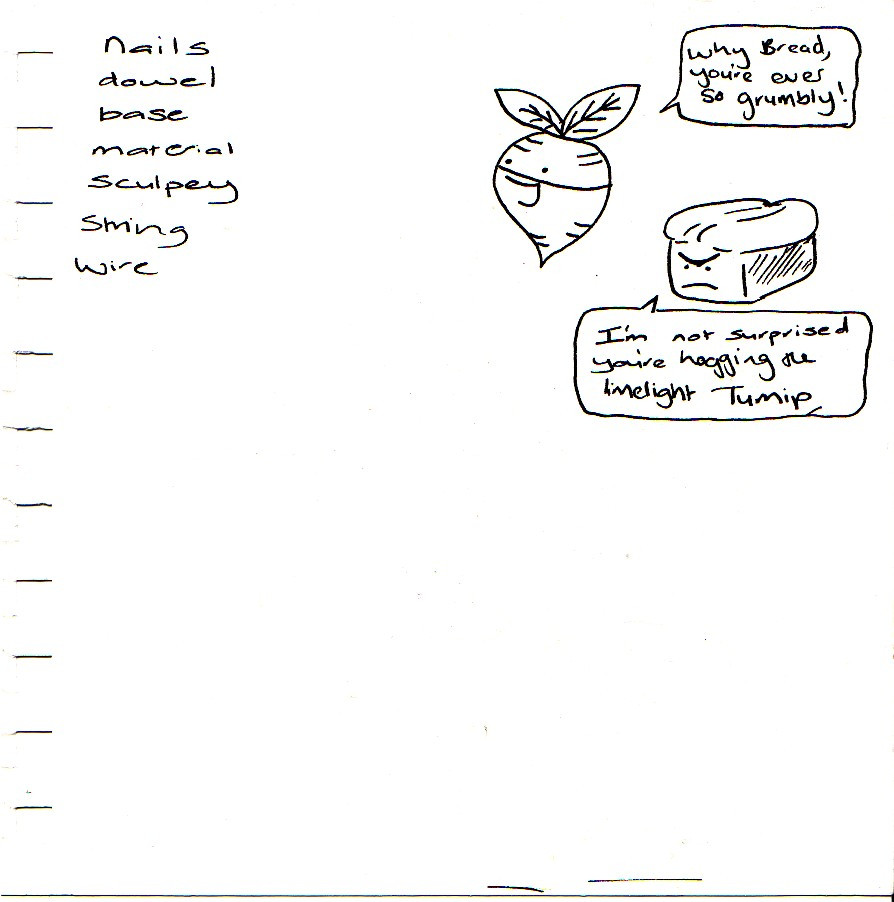 Nails
dowel
base
material
Sculpey
String
Wire
Why Bread,
you're ever
so grumbly!
I'm not surprised
you're hogging the
limelight Turnip